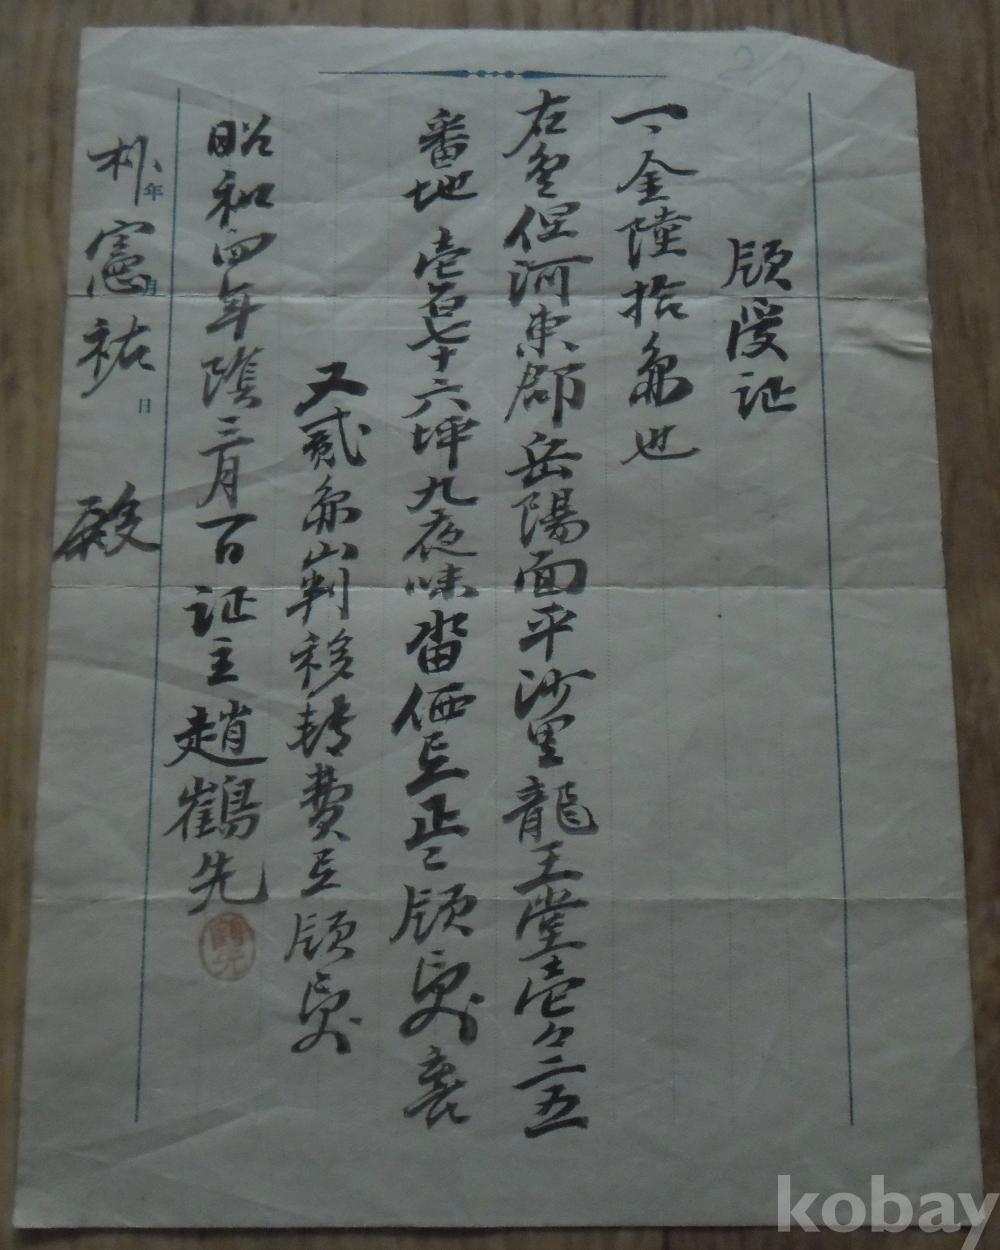 領受证
一、金陸拾円也
右金但河東郡岳陽面平沙里龍王堂壱々二五
番地 壱百七十六坪九夜味畓価로正히領受喜
又貳円山判移轉費로領受
昭和四年陰三月一日 证主 趙鶴先
朴憲祐 殿
年 月 日
kobay